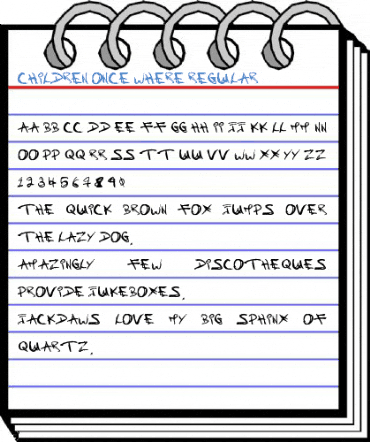 CHILDREN ONCE WHERE REGULAR
AA BB CC DD EE FF GG HH II JJ KK LL MM NN
OO PP QQ RR SS TT UU VV WW XX YY ZZ
1 2 3 4 5 6 7 8 9 0
THE QUICK BROWN FOX JUMPS OVER
THE LAZY DOG.
AMAZINGLY FEW DISCOTHEQUES
PROVIDE JUKEBOXES.
JACKDAWS LOVE MY BIG SPHINX OF
QUARTZ.